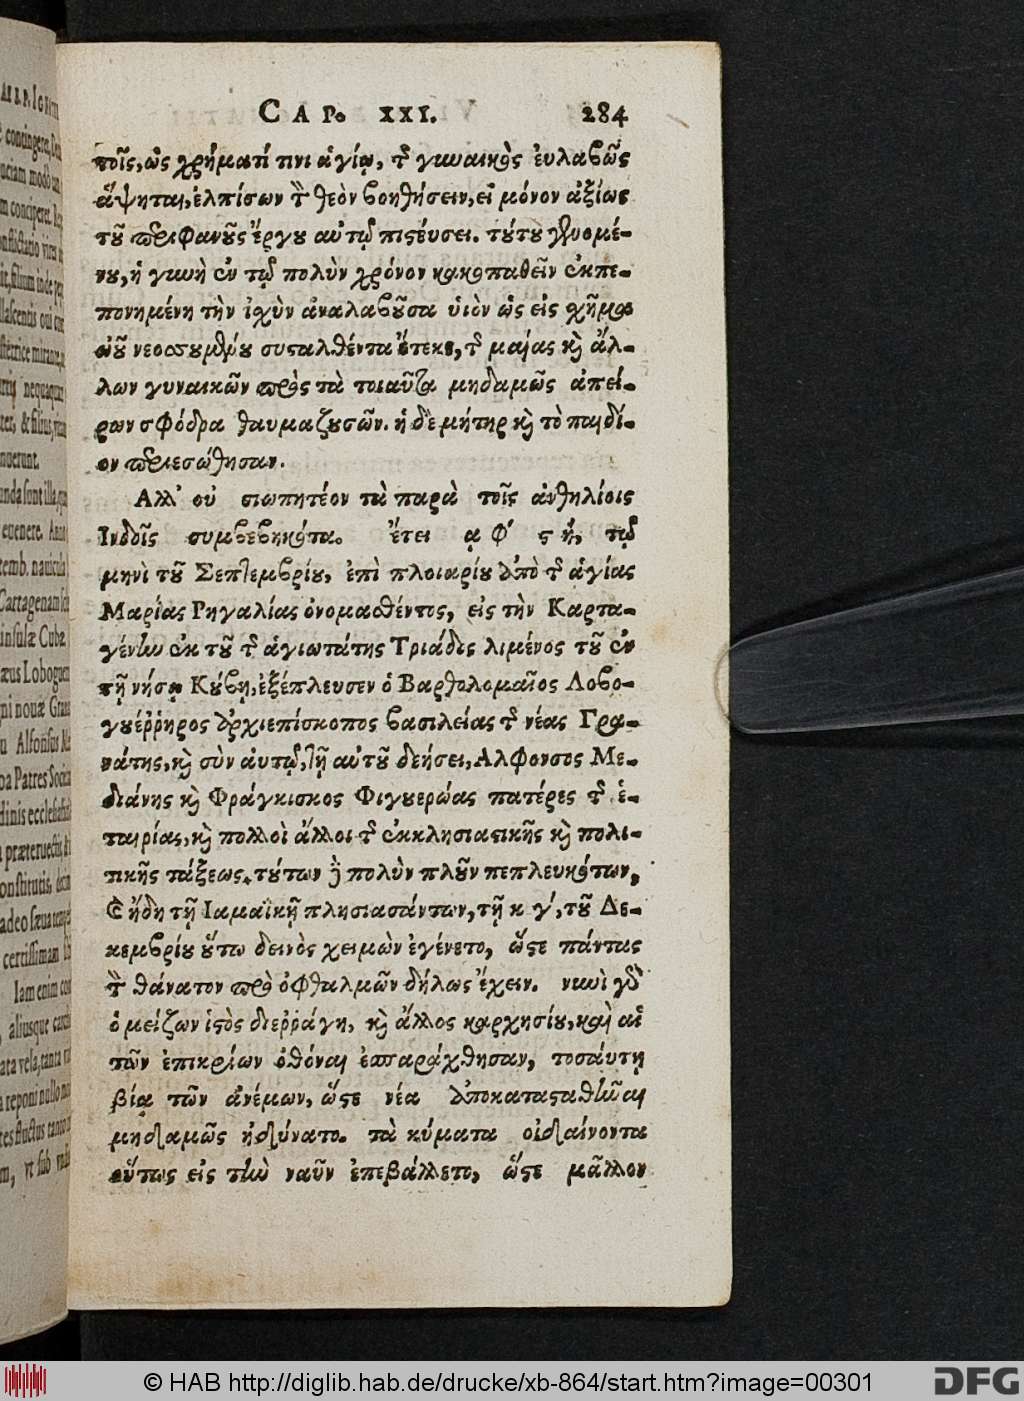 CAP. XXI. 284
τοῖς, ὡς χρήματί τινι ἁγίῳ, τῆς γυναικὸς ἐυλαβῶς
ἅψηται, ἐλπίσων τὸν θεὸν βοηθήσειν, εἰ μόνον ἀξίως
τοῦ περιφανοῦς ἔργου αὐτῷ πιστέυσει. τούτου γενομέ-
νου, ἡ γυνὴ ἐν τῷ πολὺν χρόνον κακοπαθεῖν ἐκπε-
πονημένη τὴν ἰσχὺν ἀναλαβοῦσα ὑιὸν ὡς εἰς σχῆμα
ὠοῦ νεοσσουμένου συσταλθέντα ἔτεκε, τῆς μαίας καὶ ἄλ-
λων γυναικῶν πρὸς τὰ τοιαῦτα μηδαμῶς ἀπεί-
ρων σφόδρα θαυμαζουσῶν. ἡ δὲ μήτηρ καὶ τὸ παιδί-
ον περιεσώθησαν.
Αλλ' οὐ σιωπητέον τὰ παρὰ τοῖς ἀνθηλίοις
Ινδοῖς συμβεβηκότα. ἔτει α φ ς ή, τῷ
μηνὶ τοῦ Σεπτεμβρίου, ἐπὶ πλοιαρίου ἀπὸ τῆς ἁγίας
Μαρίας Ρηγαλίας ὀνομασθέντος, εἰς τὴν Καρτα-
γένην ἐκ τοῦ τῆς ἁγιωτάτης Τριάδος λιμένος τοῦ ἐν
τῇ νήσῳ Κύβῃ, ἐξέπλευσεν ὁ Βαρθολομαῖος Λοβο-
γουέῤῥηρος ἀρχιεπίσκοπος βασιλείας τῆς νέας Γρα-
νάτης, καὶ σὺν ἀυτῷ, τῇ αὐτοῦ δεήσει, Αλφονσος Με-
διάνης καὶ Φράγκισκος Φιγουερώας πατέρες τῆς ἑ-
ταιρίας, καὶ πολλοὶ ἄλλοι τῆς ἐκκλησιαστικῆς καὶ πολι-
τικῆς τάξεως. τούτων δὲ πολὺν πλοῦν πεπλευκότων,
καὶ ἤδη τῇ Ιαμαϊκῇ πλησιασάντων, τῇ κ γ', τοῦ Δε-
κεμβρίου οὕτω δεινὸς χειμὼν ἐγένετο, ὥστε πάντας
τὸν θάνατον πρὸ ὀφθαλμῶν δήλως ἔχειν. νυνὶ γὰρ
ὁ μείζων ἱστὸς διεῤῥάγη, καὶ ἄλλος καρχησίου, καὶ αἱ
τῶν ἐπικρίων ὀθόναι ἐσπαράχθησαν, τοσάυτῃ
βίᾳ τῶν ἀνέμων, ὥστε νέα ἀποκατασταθῆναι
μηδαμῶς ἠδύνατο. τὰ κύματα οἰδαίνοντα
οὕτως εἰς τὴν ναῦν ἐπεβάλλετο, ὥστε μᾶλλον
© HAB http://diglib.hab.de/drucke/xb-864/start.htm?image=00301
DFG